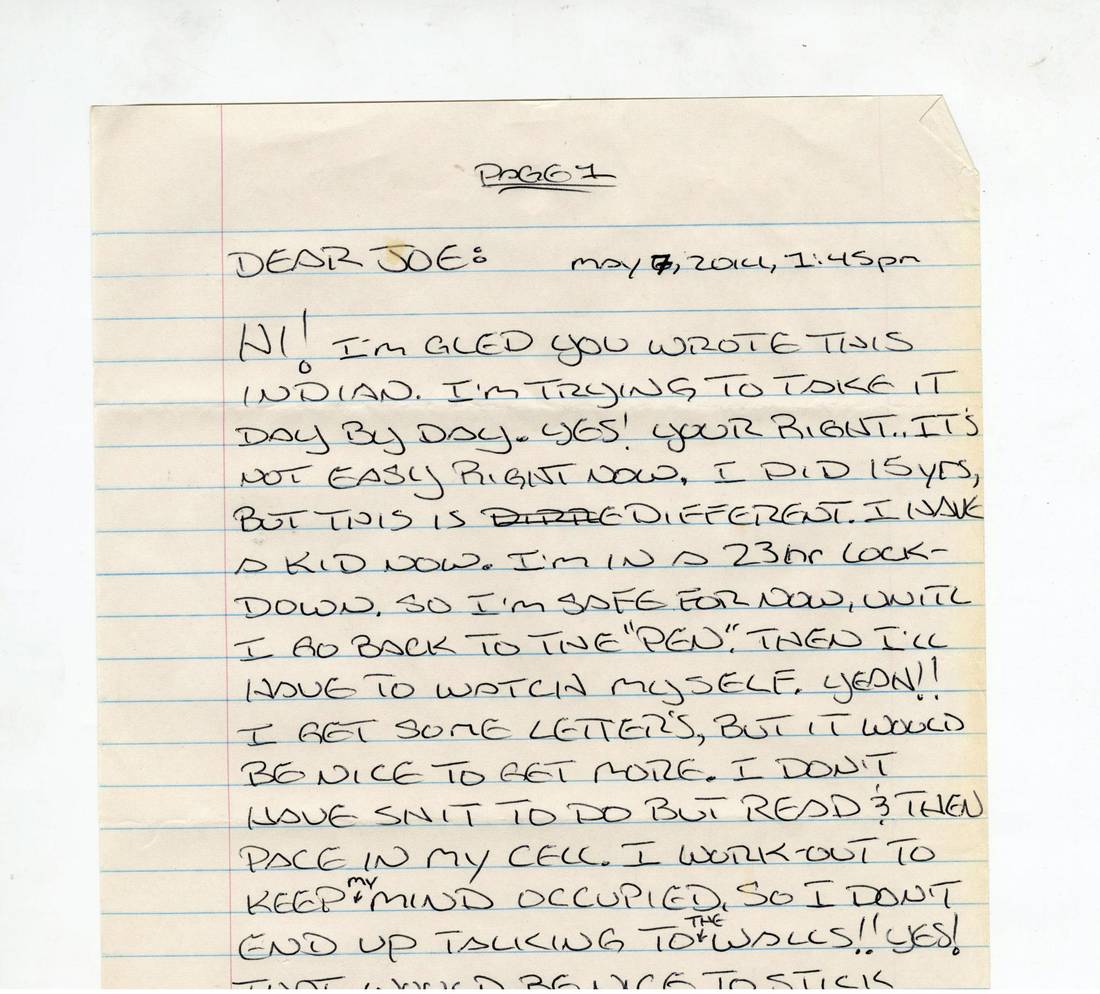 PAGE 1
DEAR JOE: MAY 7, 2014, 1:45pm
HI! I'm GLED YOU WROTE THIS
INDIAN. I'm TRYING TO TAKE IT
DAY BY DAY. YES! YOUR RIGHT.. IT'S
NOT EASY RIGHT NOW. I DID 15 yrs,
BUT THIS IS DIFFERENT. I HAVE
A KID NOW. I'm IN A 23hr LOCK-
DOWN. SO I'm SAFE FOR NOW, UNITL
I GO BACK TO THE "PEN". THEN I'LL
HAVE TO WATCH MYSELF. YEAH!!
I GET SOME LETTER'S, BUT IT WOULD
BE NICE TO GET MORE. I DON'T
HAVE SHIT TO DO BUT READ & THEN
PACE IN MY CELL. I WORK-OUT TO
KEEP MY MIND OCCUPIED, SO I DON'T
END UP TALKING TO THE WALLS!! YES!
THAT WOULD BE NICE TO STICK